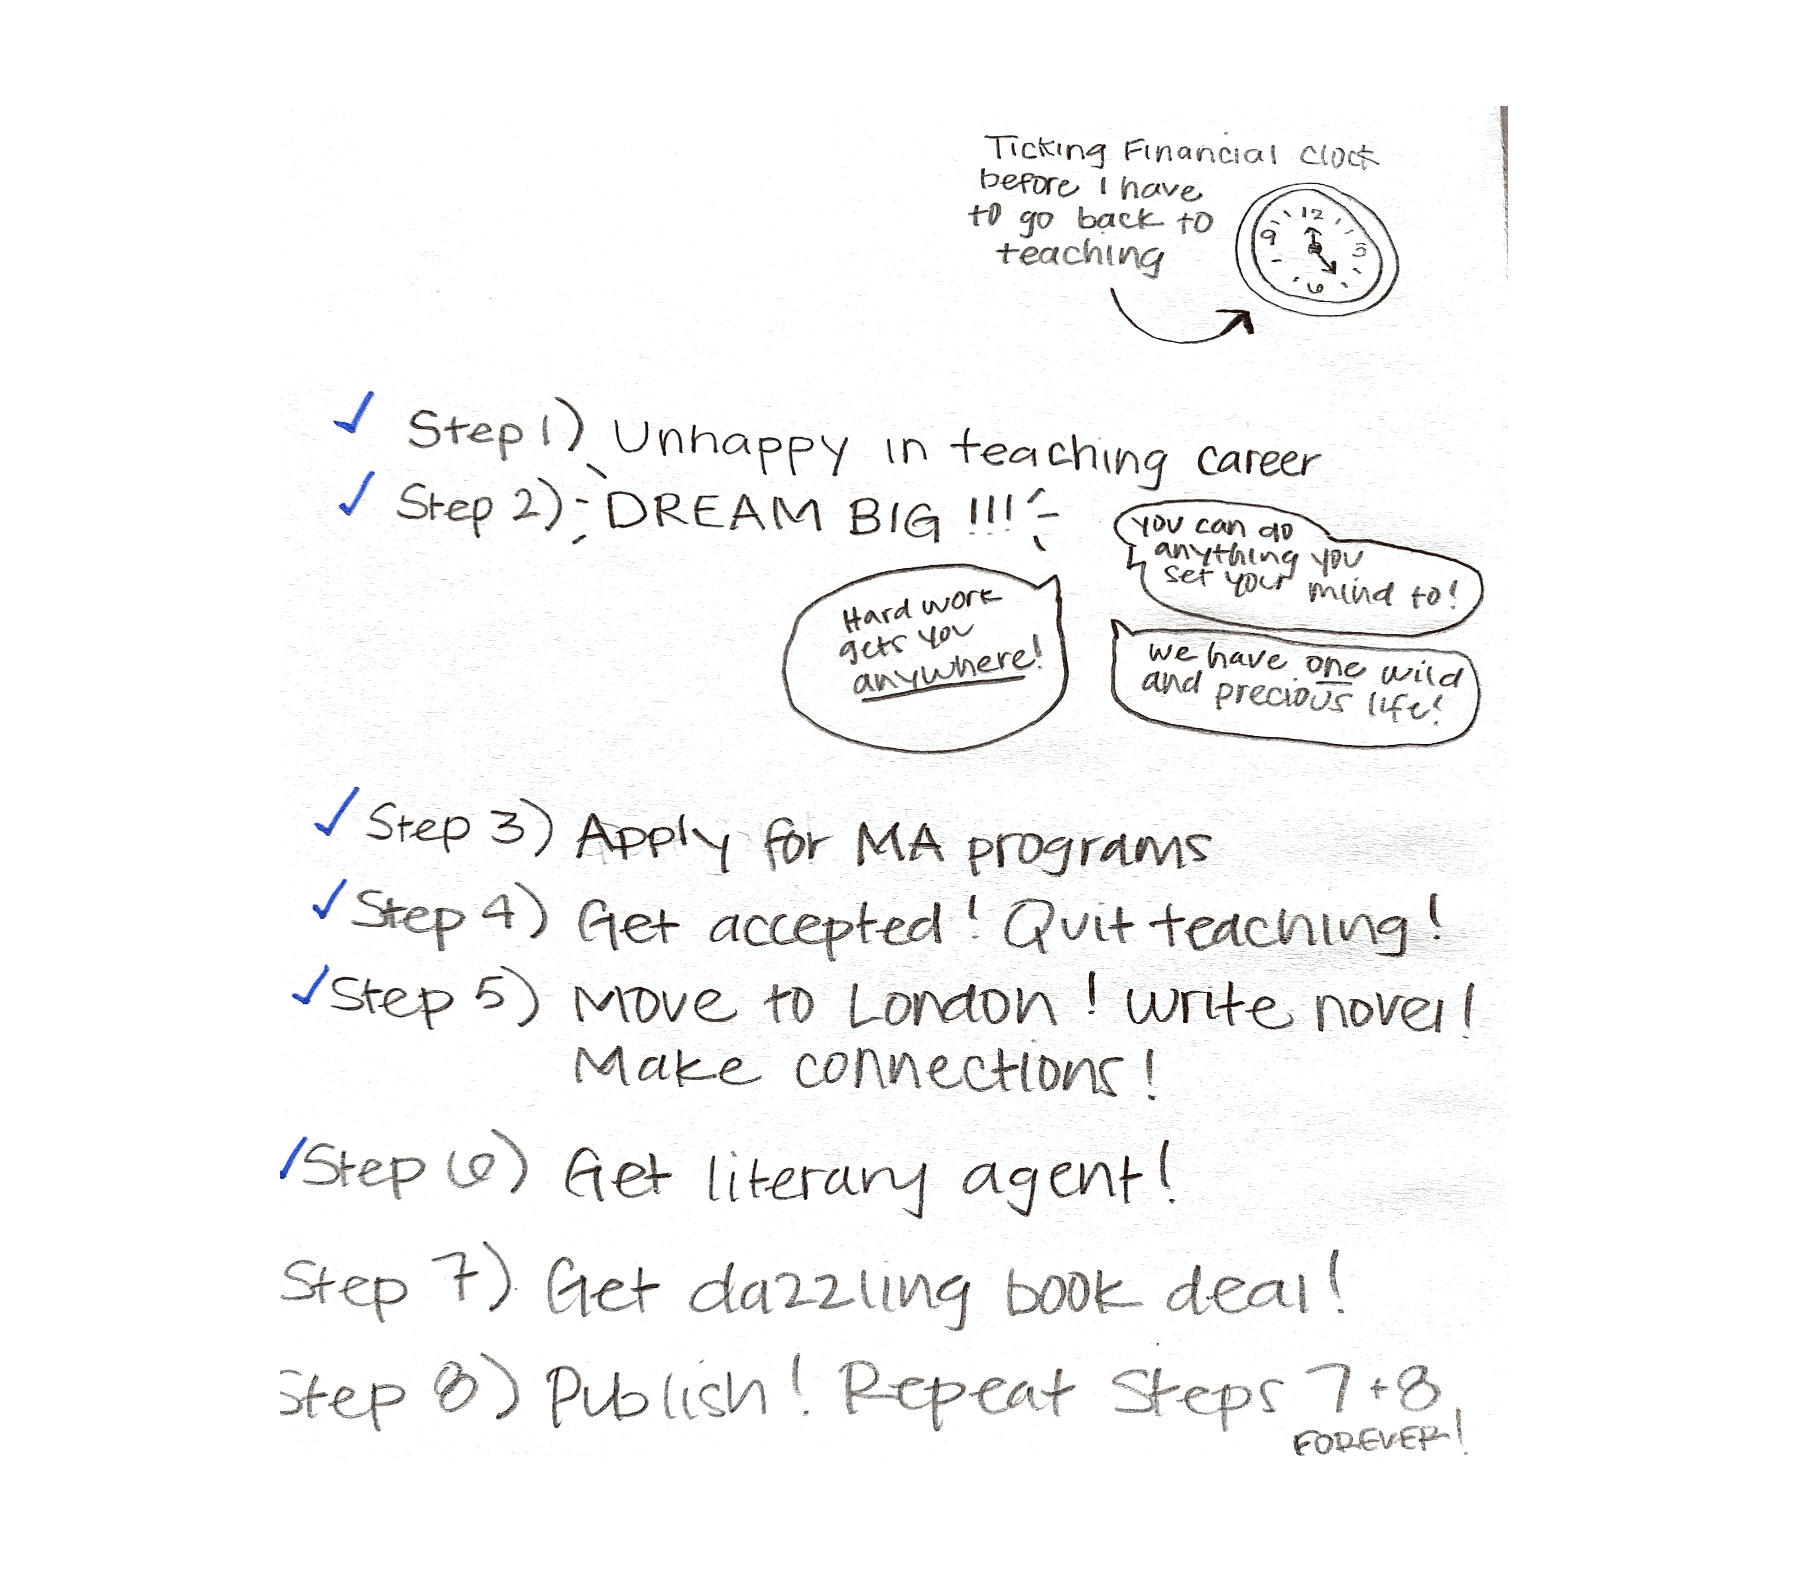 Ticking Financial Clock
before I have
to go back to
teaching
12
9
3
6
Step 1) Unhappy in teaching career
Step 2) DREAM BIG !!!
you can do
anything you
set your mind to!
Hard work
gets you
anywhere!
we have one wild
and precious life!
Step 3) Apply for MA programs
Step 4) Get accepted! Quit teaching!
Step 5) Move to London! Write novel!
Make connections!
Step 6) Get literary agent!
Step 7) Get dazzling book deal!
Step 8) Publish! Repeat Steps 7+8
FOREVER!